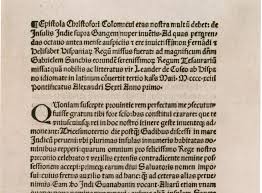 Epistola Christofori Colom: cui etas nostra multū debet: de
Insulis Indie supra Gangem nuper inuētis. Ad quas perqren-
das octauo antea mense auspicijs et ere inuictissimoꝝ Fernādi et
Helisabet Hispaniaꝝ Regū missus fuerat: ad magnificum dnm
Gabrielem Sanchis eorundē serenissimoꝝ Regum Tesaurariū
missa: quā nobilis ac litteratus vir Leander de Cosco ab Hispa
no idiomate in latinum cōuertit tertio kal's Maii. M.cccc.xciii
Pontificatus Alexandri Sexti Anno primo.
Quoniam suscepte prouintie rem perfectam me cōsecutum
fuisse gratum tibi fore scio: has constitui exarare: que te
vniuscuiusque rei in hoc nostro itinere geste inuenteque ad-
moneant: Tricesimotertio die postquam Gadibus discessi in mare
Indicū perueni: vbi plurimas insulas innumeris habitatas ho-
minibus repperi: quarum omnium pro felicissimo Rege nostro
preconio celebrato et vexillis extensis contradicente nemine pos-
sessionem accepi: primeque earum diui Saluatoris nomen impo-